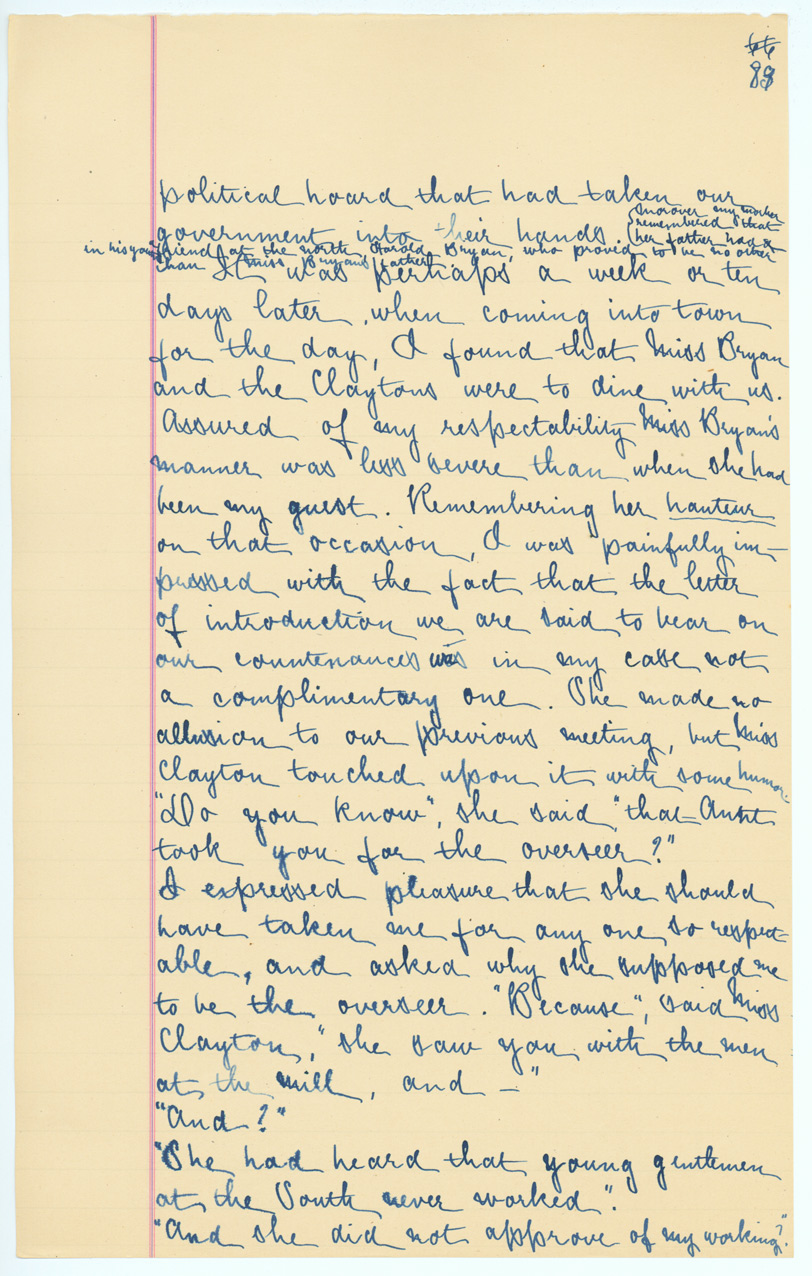 66
88
political hoard that had taken our
government into their hands. (Morover my mother
remembered that
her father had a
in his youth friend at the north, Harold Bryan, who proved to be no other
than Miss Bryan's father.
It was perhaps a week or ten
days later, when coming into town
for the day, I found that Miss Bryan
and the Claytons were to dine with us.
Assured of my respectability Miss Bryan's
manner was less severe than when she had
been my guest. Remembering her hauteur
on that occasion, I was painfully im-
pressed with the fact that the letter
of introduction we are said to bear on
our countenances was in my case not
a complimentary one. She made no
allusion to our previous meeting, but Miss
Clayton touched upon it with some humor.
"Do you know", she said "that Aunt
took you for the overseer?"
I expressed pleasure that she should
have taken me for any one so respect-
able, and asked why she supposed me
to be the overseer. "Because", said Miss
Clayton, "she saw you with the men
at the mill, and —"
"And?"
"She had heard that young gentlemen
at the South never worked".
"And she did not approve of my working?"